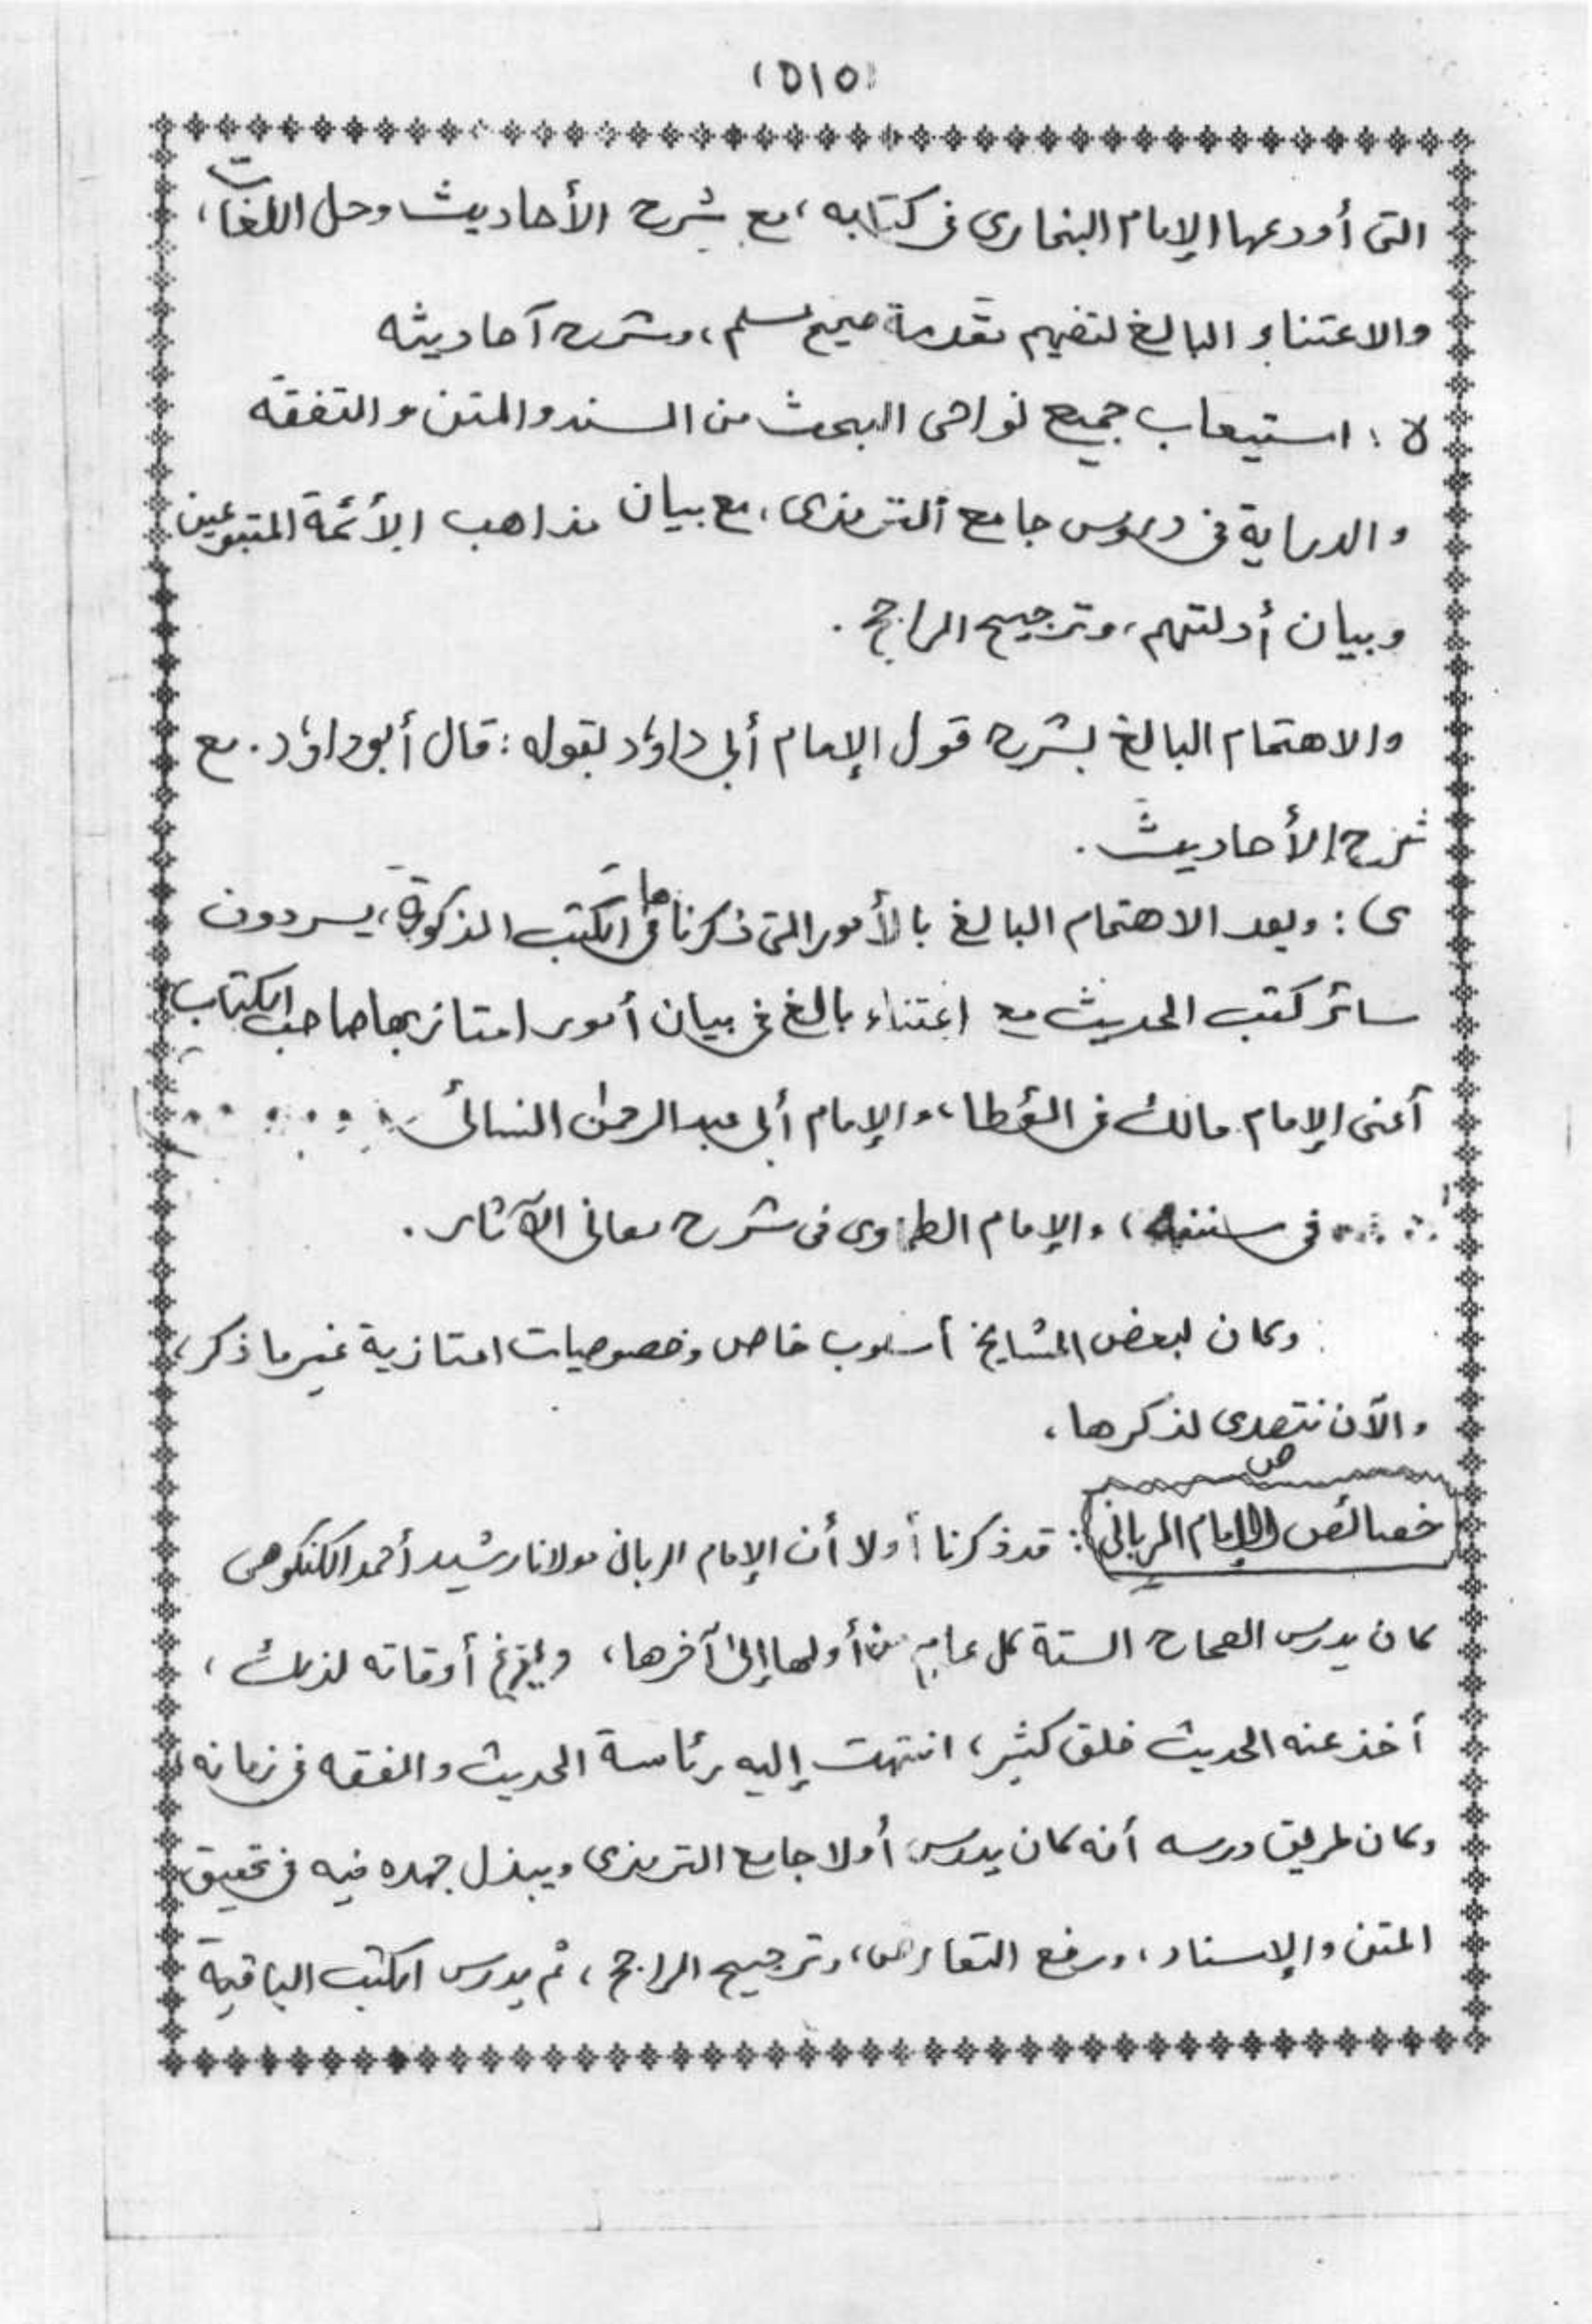 (٥١٥)
التى أودعها الإمام البخارى فى كتابه، مع شرح الأحاديث وحل اللغات،
والاعتناء البالغ لتفهيم مقدمة صحيح مسلم، وشرح أحاديثه
ه : استيعاب جميع نواحى البحث من السند والمتن والتفقه
والدراية فى دروس جامع الترمذى، مع بيان مذاهب الأئمة المتبوعين
وبيان أدلتهم، وترجيح الراجح .
والاهتمام البالغ بشرح قول الإمام أبى داؤد لقوله : قال أبوداؤد. مع
شرح الأحاديث .
ى : وبعد الاهتمام البالغ بالأمور التى ذكرناها فى الكتب المذكورة، يسردون
سائر كتب الحديث مع اعتناء بالغ فى بيان أمور امتاز بها صاحب الكتاب
أعنى الإمام مالك فى المؤطا، والإمام أبى عبد الرحمن النسائى
فى سننه، والإمام الطحاوى فى شرح معانى الآثار .
وكان لبعض المشايخ أسلوب خاص وخصوصيات امتازية غير ما ذكر،
والآن نتصدى لذكرها،
خصائص الإمام الربانى : قد ذكرنا أولا أن الإمام الربانى مولانا رشيد أحمد الكنكوهى
كان يدرس الصحاح الستة كل عام من أولها إلى آخرها، ويفرغ أوقاته لذلك ،
أخذ عنه الحديث خلق كثير، انتهت إليه رئاسة الحديث والفقه فى زمانه
وكان طريق درسه أنه كان يدرس أولا جامع الترمذى ويبذل جهده فيه فى تحقيق
المتن والإسناد، ورفع التعارض، وترجيح الراجح، ثم يدرس الكتب الباقية